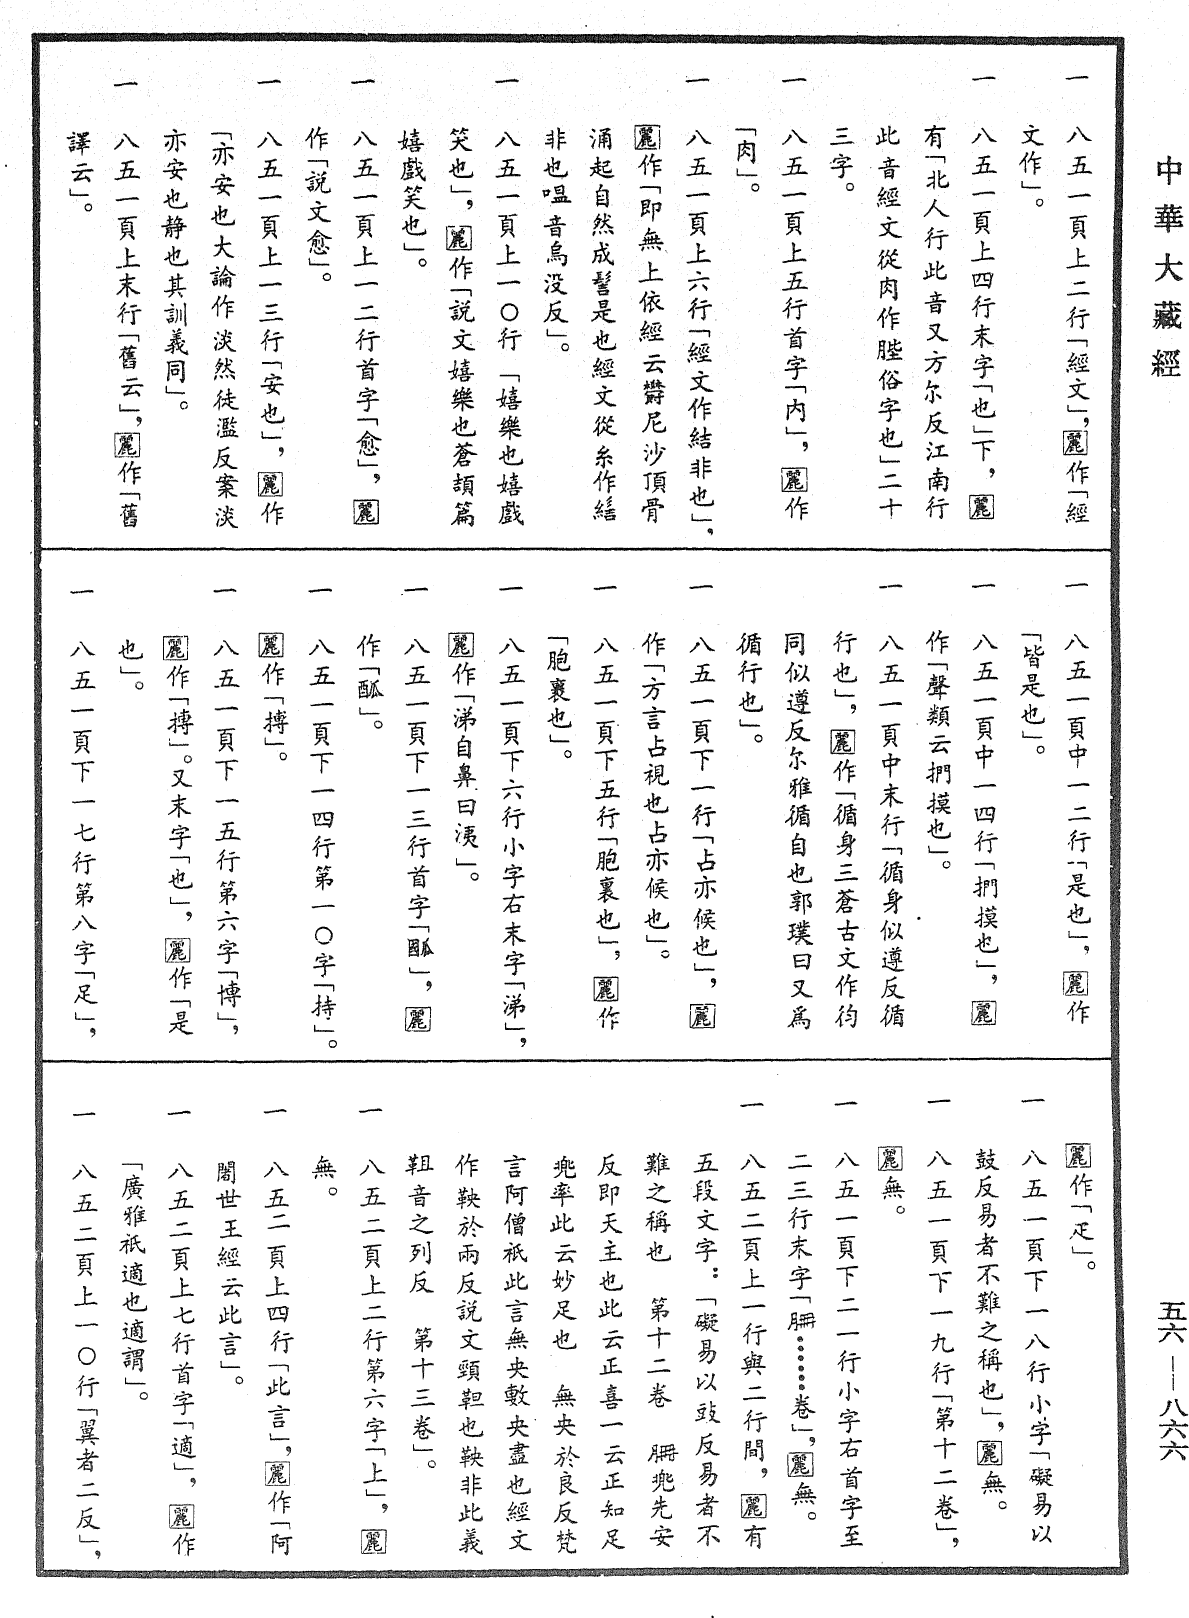 中華大藏經
一　八五一頁上二行「經文」，麗作「經
文作」。
一　八五一頁上四行末字「也」下，麗
有「北人行此音又方尔反江南行
此音經文從肉作䏶俗字也」二十
三字。
一　八五一頁上五行首字「内」，麗作
「肉」。
一　八五一頁上六行「經文作結非也」，
麗作「即無上依經云欝尼沙頂骨
涌起自然成髻是也經文從糸作結
非也嗢音烏没反」。
一　八五一頁上一〇行「嬉樂也嬉戲
笑也」，麗作「説文嬉樂也蒼頡篇
嬉戲笑也」。
一　八五一頁上一二行首字「愈」，麗
作「説文愈」。
一　八五一頁上一三行「安也」，麗作
「亦安也大論作淡然徒濫反案淡
亦安也静也其訓義同」。
一　八五一頁上末行「舊云」，麗作「舊
譯云」。
一　八五一頁中一二行「是也」，麗作
「皆是也」。
一　八五一頁中一四行「捫摸也」，麗
作「聲類云捫摸也」。
一　八五一頁中末行「循身似遵反循
行也」，麗作「循身三蒼古文作㣫
同似遵反尔雅循自也郭璞曰又爲
循行也」。
一　八五一頁下一行「占亦候也」，麗
作「方言占視也占亦候也」。
一　八五一頁下五行「胞裏也」，麗作
「胞裹也」。
一　八五一頁下六行小字右末字「涕」，
麗作「涕自鼻曰洟」。
一　八五一頁下一三行首字「」，麗
作「」。
一　八五一頁下一四行第一〇字「持」。
麗作「搏」。
一　八五一頁下一五行第六字「博」，
麗作「摶」。又末字「也」，麗作「是
也」。
一　八五一頁下一七行第八字「足」，
麗作「疋」。
一　八五一頁下一八行小字「礙易以
鼓反易者不難之稱也」，麗無。
一　八五一頁下一九行「第十二卷」，
麗無。
一　八五一頁下二一行小字右首字至
二三行末字「𦛗……卷」，麗無。
一　八五二頁上一行與二行間，麗有
五段文字：「礙易以豉反易者不
難之稱也　第十二卷　𦛗兜先安
反即天主也此云正喜一云正知足
兜率此云妙足也　無央於良反梵
言阿僧祇此言無央數央盡也經文
作鞅於兩反説文頸靼也鞅非此義
靼音之列反　第十三卷」。
一　八五二頁上二行第六字「上」，麗
無。
一　八五二頁上四行「此言」，麗作「阿
闍世王經云此言」。
一　八五二頁上七行首字「適」，麗作
「廣雅祇適也適謂」。
一　八五二頁上一〇行「翼者二反」，
五六——八六六